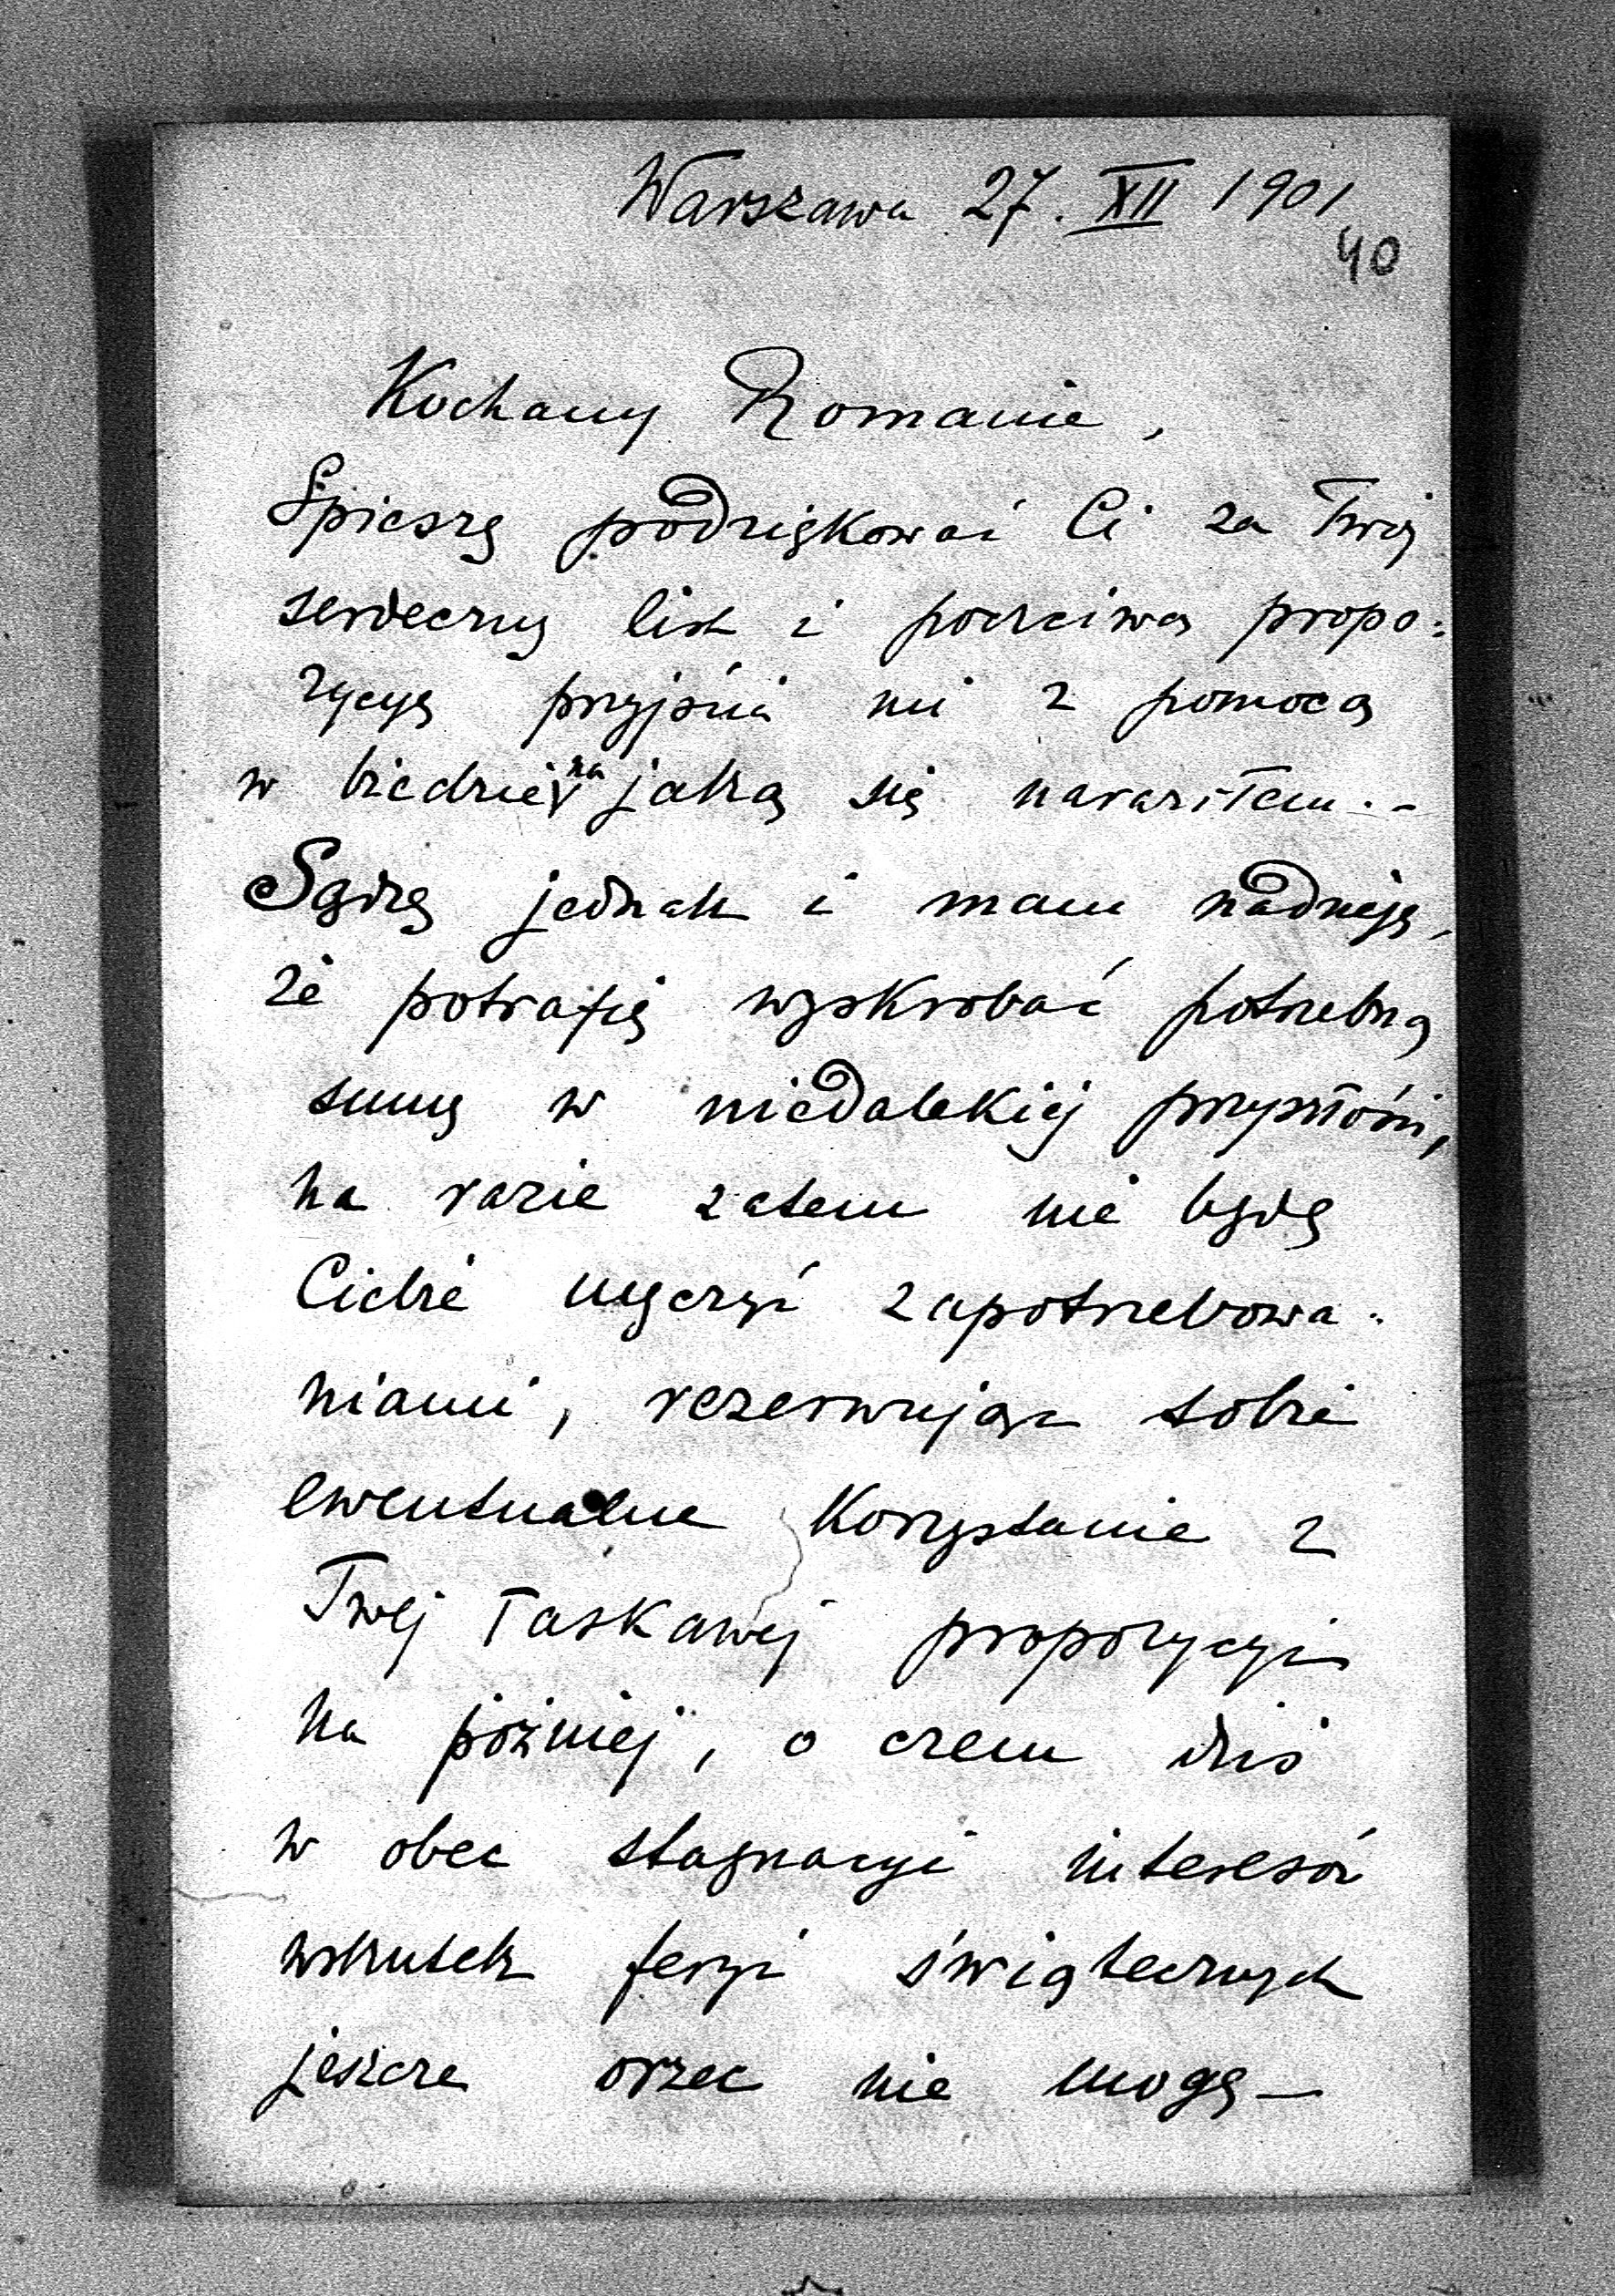 Warszawa 27. XII 1901
40
Kochany Romanie,
Śpieszę podziękować Ci za Twój
serdeczny list i poczciwą propo-
zycyę przyjścia mi z pomocą
w biedzie, na jaką się naraziłem. -
Sądzę jednak i mam nadzieję,
że potrafię wyskrobać potrzebną
sumę w niedalekiej przyszłości,
na razie zatem nie będę
Ciebie męczyć zapotrzebowa-
niami, rezerwując sobie
ewentualne korzystanie z
Twej łaskawej propozycyi
na później, o czem dziś
w obec stagnacyi interesów
wskutek feryi świątecznych
jeszcze orzec nie mogę —